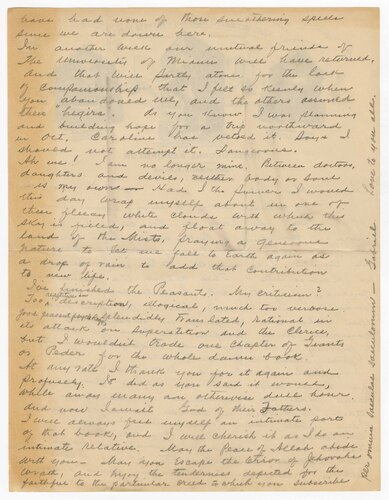 have had none of those smothering spells
since we are down here.
In another week our mutual friends of
The University of Miami will have returned,
and that will partly atone for the lack
of companionship that I felt so keenly when
you "abandoned us", and the others assumed
their hegira. As you know I was planning
and building hope for a trip northward
in Oct. Caroline has vetoed it. Says I
should not attempt it. Dangerous.
Ah me! I am no longer mine. Between doctors,
daughters and devils, neither body or soul
is my own — Had I the power I would
this day wrap myself about in one of
these fleecy white clouds with which this
sky is filled, and float away to the
land of the Mists, praying a generous
Nature to let me fall to Earth again as
a drop of rain to add that contribution
to new life.
I've finished the Peasants. My criticism?
Too repetitious description, illogical, much too verbose
for Splendidly translated, rational in
its attack on Superstition and the Clerics,
but I wouldn't trade one Chapter of Giants
or Peder for the whole damn book.
At any rate I thank you for it again and
profusely. It did as you said it would,
while away many an otherwise dull hour.
and now I await God of Their Fathers.
I will always feel myself an intimate part
of that book, and I will cherish it as I do an
intimate relative. May the Peace of Allah abide
With you — May you escape the Terror of Jehovah's
Wrath, and know the tenderness expected for the
faithful to the particular Creed to which you subscribe
per omnia saeculae saeculorum — Gabriel
Love to you all.